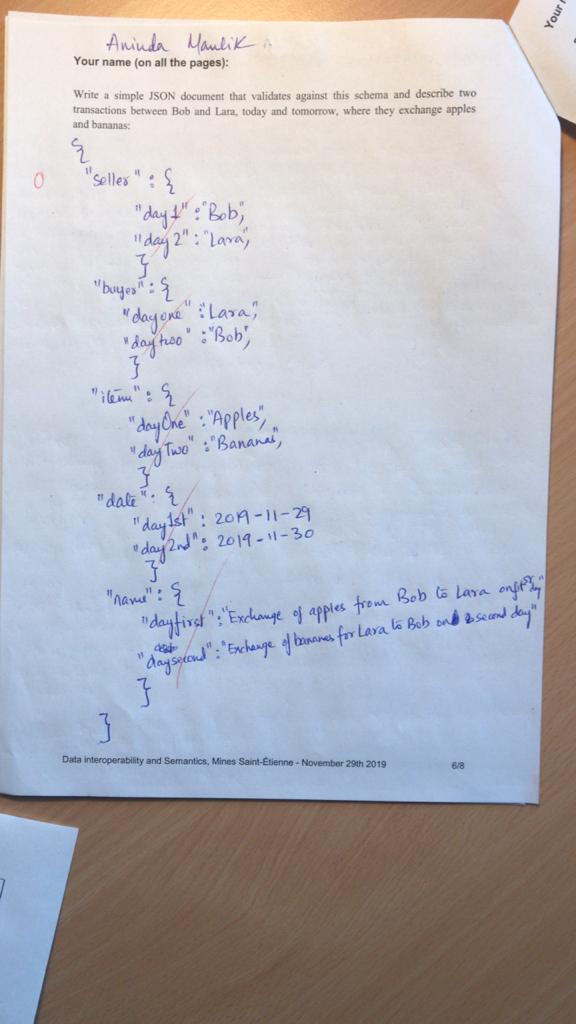 Your
Aninda Maulik
Your name (on all the pages):
Write a simple JSON document that validates against this schema and describe two
transactions between Bob and Lara, today and tomorrow, where they exchange apples
and bananas:
{
0
"seller" : {
"day1" : "Bob",
"day2" : "Lara",
}
"buyer" : {
"dayone" : "Lara",
"daytwo" : "Bob",
}
"item" : {
"dayOne" : "Apples",
"dayTwo" : "Bananas",
}
"date" : {
"day1st" : 2019-11-29
"day2nd" : 2019-11-30
}
"name" : {
"dayfirst" : "Exchange of apples from Bob to Lara on day"
"daysecond" : "Exchange of bananas for Lara to Bob on second day"
}
}
Data interoperability and Semantics, Mines Saint-Étienne - November 29th 2019 6/8